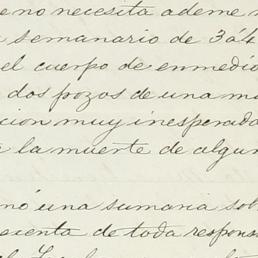 e no necesita ademe
semanario de 3 á 4
el cuerpo de enmedio
dos pozos de una
cion muy inesperada
la muerte de algun
nó una sumaria so
sienta de toda respons